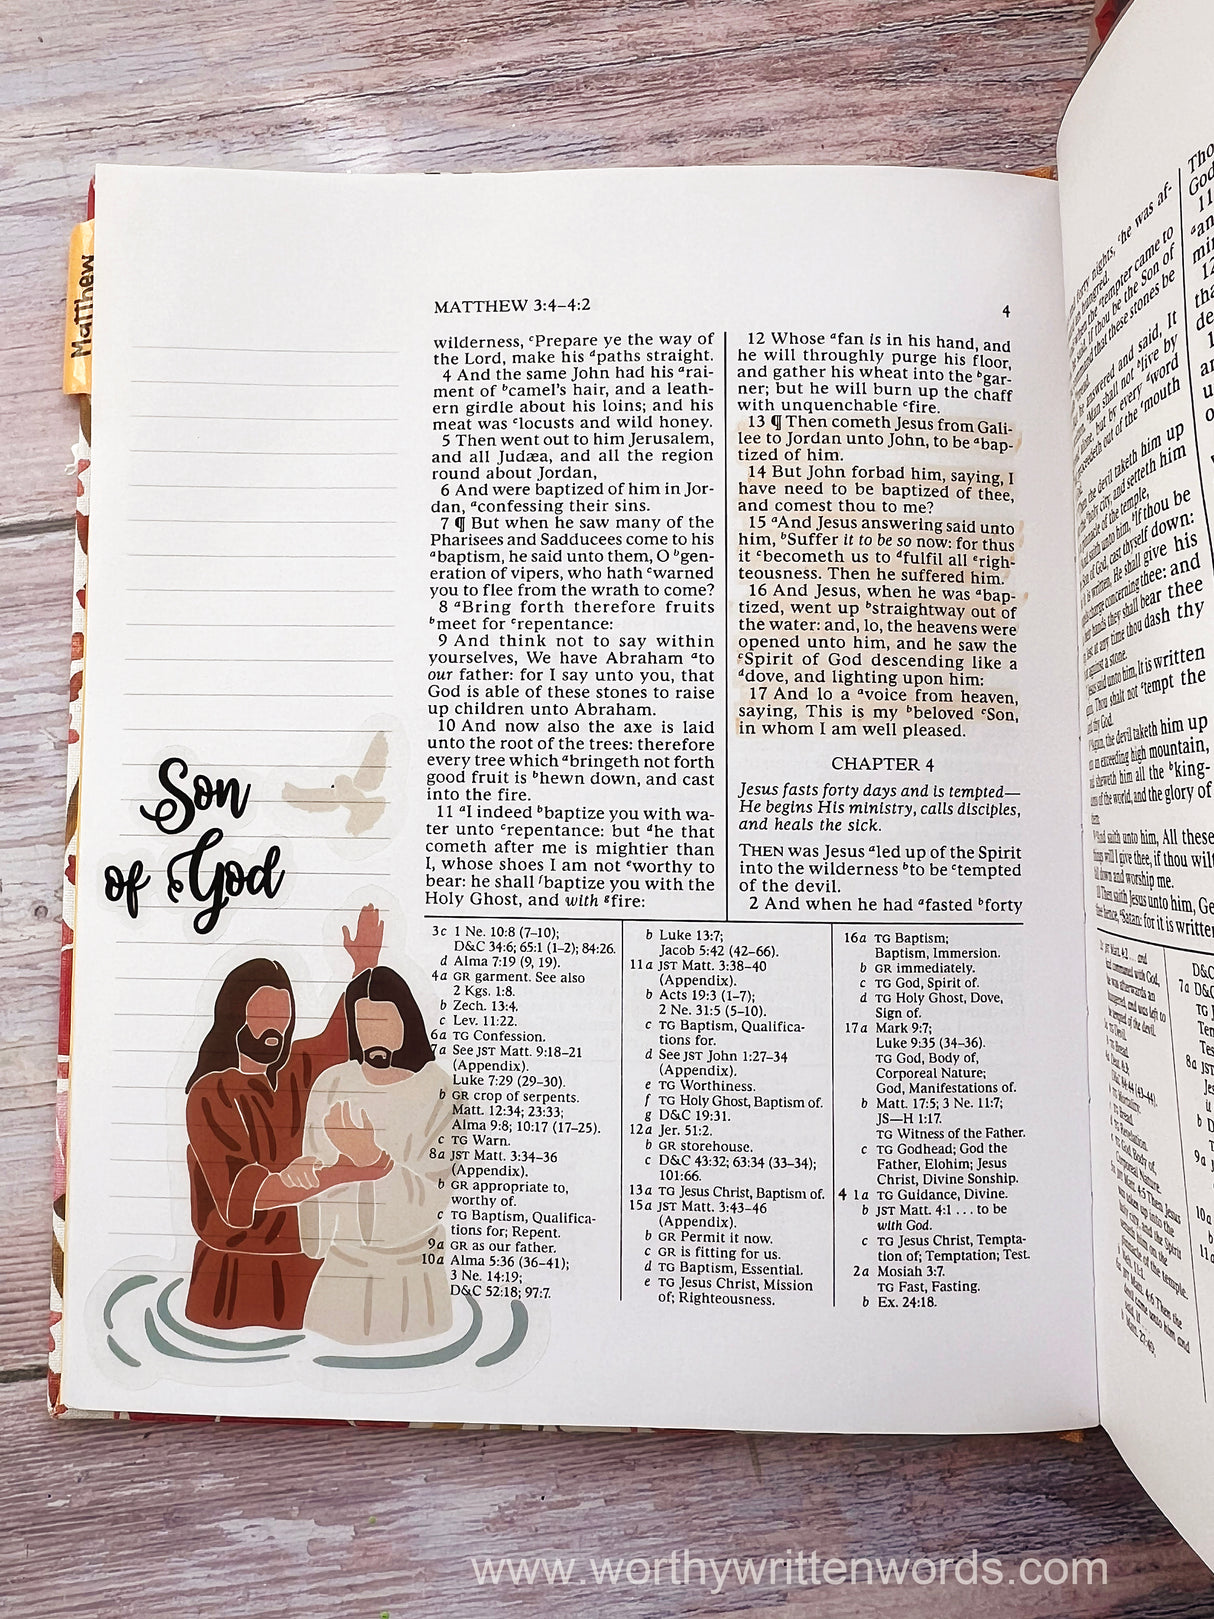 Matthew
MATTHEW 3:4–4:2
4
wilderness, cPrepare ye the way of
the Lord, make his apaths straight.
4 And the same John had his arai-
ment of bcamel's hair, and a leath-
ern girdle about his loins; and his
meat was clocusts and wild honey.
5 Then went out to him Jerusalem,
and all Judæa, and all the region
round about Jordan,
6 And were baptized of him in Jor-
dan, aconfessing their sins.
7 ¶ But when he saw many of the
Pharisees and Sadducees come to his
abaptism, he said unto them, O bgen-
eration of vipers, who hath cwarned
you to flee from the wrath to come?
8 aBring forth therefore fruits
bmeet for crepentance:
9 And think not to say within
yourselves, We have Abraham ato
our father: for I say unto you, that
God is able of these stones to raise
up children unto Abraham.
10 And now also the axe is laid
unto the root of the trees: therefore
every tree which abringeth not forth
good fruit is bhewn down, and cast
into the fire.
11 aI indeed bbaptize you with wa-
ter unto crepentance: but dhe that
cometh after me is mightier than
I, whose shoes I am not eworthy to
bear: he shall fbaptize you with the
Holy Ghost, and with gfire:
12 Whose afan is in his hand, and
he will throughly purge his floor,
and gather his wheat into the bgar-
ner; but he will burn up the chaff
with unquenchable cfire.
13 ¶ Then cometh Jesus from Gali-
lee to Jordan unto John, to be abap-
tized of him.
14 But John forbad him, saying, I
have need to be baptized of thee,
and comest thou to me?
15 aAnd Jesus answering said unto
him, bSuffer it to be so now: for thus
it cbecometh us to dfulfil all erigh-
teousness. Then he suffered him.
16 And Jesus, when he was abap-
tized, went up bstraightway out of
the water: and, lo, the heavens were
opened unto him, and he saw the
cSpirit of God descending like a
ddove, and lighting upon him:
17 And lo a avoice from heaven,
saying, This is my bbeloved cSon,
in whom I am well pleased.
CHAPTER 4
Jesus fasts forty days and is tempted—
He begins His ministry, calls disciples,
and heals the sick.
THEN was Jesus aled up of the Spirit
into the wilderness bto be ctempted
of the devil.
2 And when he had afasted bforty
Son
of God
3c 1 Ne. 10:8 (7–10);
D&C 34:6; 65:1 (1–2); 84:26.
d Alma 7:19 (9, 19).
4a GR garment. See also
2 Kgs. 1:8.
b Zech. 13:4.
c Lev. 11:22.
6a TG Confession.
7a See JST Matt. 9:18–21
(Appendix).
Luke 7:29 (29–30).
b GR crop of serpents.
Matt. 12:34; 23:33;
Alma 9:8; 10:17 (17–25).
c TG Warn.
8a JST Matt. 3:34–36
(Appendix).
b GR appropriate to,
worthy of.
c TG Baptism, Qualifica-
tions for; Repent.
9a GR as our father.
10a Alma 5:36 (36–41);
3 Ne. 14:19;
D&C 52:18; 97:7.
b Luke 13:7;
Jacob 5:42 (42–66).
11a JST Matt. 3:38–40
(Appendix).
b Acts 19:3 (1–7);
2 Ne. 31:5 (5–10).
c TG Baptism, Qualifica-
tions for.
d See JST John 1:27–34
(Appendix).
e TG Worthiness.
f TG Holy Ghost, Baptism of.
g D&C 19:31.
12a Jer. 51:2.
b GR storehouse.
c D&C 43:32; 63:34 (33–34);
101:66.
13a TG Jesus Christ, Baptism of.
15a JST Matt. 3:43–46
(Appendix).
b GR Permit it now.
c GR is fitting for us.
d TG Baptism, Essential.
e TG Jesus Christ, Mission
of; Righteousness.
16a TG Baptism;
Baptism, Immersion.
b GR immediately.
c TG God, Spirit of.
d TG Holy Ghost, Dove,
Sign of.
17a Mark 9:7;
Luke 9:35 (34–36).
TG God, Body of,
Corporeal Nature;
God, Manifestations of.
b Matt. 17:5; 3 Ne. 11:7;
JS—H 1:17.
TG Witness of the Father.
c TG Godhead; God the
Father, Elohim; Jesus
Christ, Divine Sonship.
4 1a TG Guidance, Divine.
b JST Matt. 4:1 . . . to be
with God.
c TG Jesus Christ, Tempta-
tion of; Temptation; Test.
2a Mosiah 3:7.
TG Fast, Fasting.
b Ex. 24:18.
www.worthywrittenwords.com